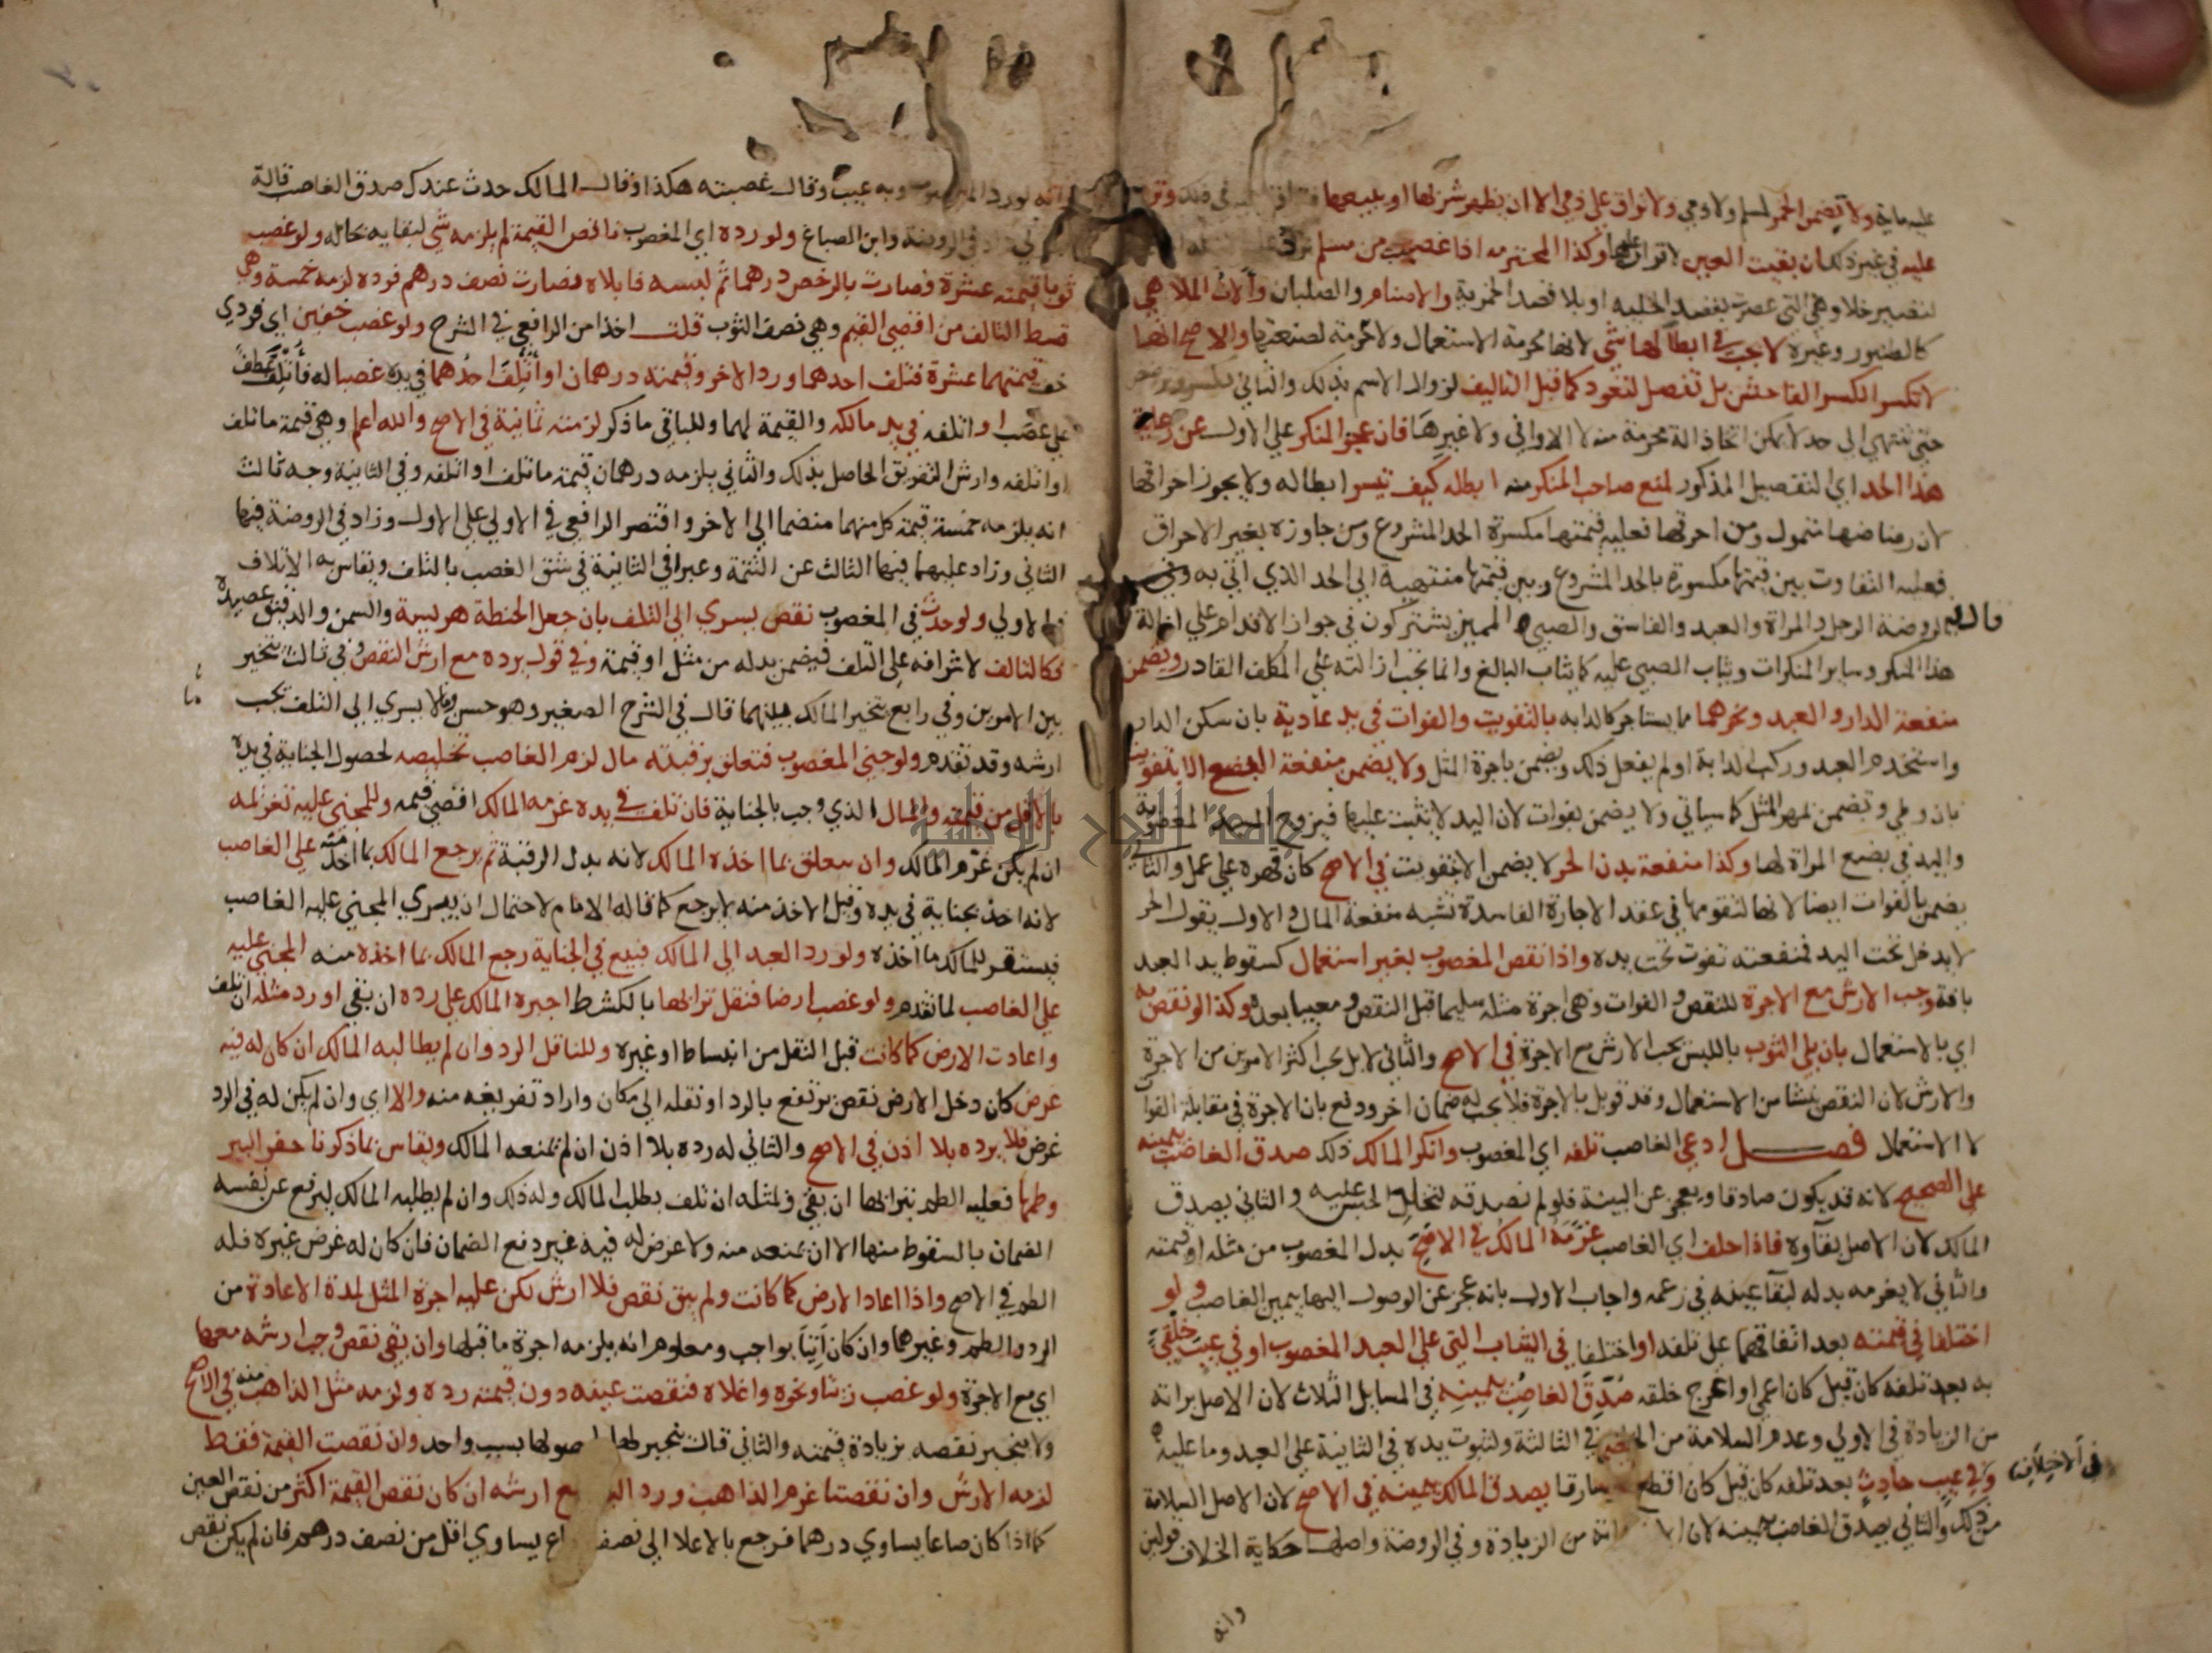 عليه ماية ولا تضمن الخمر لمسلم ولا ذمي ولا تراق على ذمي الا ان يظهر شربها او بيعها
عليه في غير ذلك ان بقيت العين لاقراره عليها وكذا المحترمه اذا غصبت من مسلم ترد عليه
لتصير خلا وهي التي عصرت بقصد الخليه او بلا قصد الخمرية والاصنام والصلبان وآلات الملاهي
كالطنبور وغيره لا يجب في ابطالها شي لانها محرمة الاستعمال ولا حرمة لصنعتها والاصح انها
لا تكسر الكسر الفاحش بل تفصل لتعود كما قبل التاليف لزوال الاسم بذلك والثاني تكسر
حتى تنتهي الى حد لا يمكن اتخاذ الة محرمة منه لا الاولى ولا غيرها فان عجز المنكر على الاول عن رعاية
هذا الحد اي التفصيل المذكور لمنع صاحب المنكر منه ابطله كيف تيسر ابطاله ولا يجوز احراقها
لان رضاضها متمول ومن احرقها فعليه قيمتها مكسرة الحد المشروع ومن جاوزه بغير الاحراق
فعليه التفاوت بين قيمتها مكسورة بالحد المشروع وبين قيمتها منتهية الى الحد الذي اتى به وفي
الروضة الرجل والمراة والعبد والفاسق والصبي المميز يشتركون في جواز الاقدام على ازالة
قال
هذا المنكر وساير المنكرات ويثاب الصبي عليه كما يثاب البالغ وانما تجب ازالته على المكلف القادر وتضمن
منفعة الدار والعبد ونحوهما مما يستاجر كالدابه بالتفويت والفوات في يد عادية بان سكن الدار
واستخدم العبد وركب الدابة او لم يفعل ذلك ويضمن باجرة المثل ولا يضمن منفعة البضع الا بتفويت
بان وطي وتضمن بمهر المثل كما سياتي ولا يضمن بفوات لان اليد لا تثبت عليها فيزوج السيد المغصوبة
واليد في بضع المراة لها وكذا منفعة بدن الحر لا يضمن الا بتفويت في الاصح كان قهره على عمل والثاني
يضمن بالفوات ايضا لانها لتقومها في عقد الاجارة الفاسدة تشبه منفعة المال والاول يقول الحر
لا يدخل تحت اليد فمنفعته تفوت تحت يده واذا نقص المغصوب بغير استعمال كسقوط يد العبد
بافة وجب الارش مع الاجرة للنقص والفوات وهي اجرة مثله سليما قبل النقص ومعيبا بعده وكذا لو نقص به
اي بالاستعمال بان بلي الثوب باللبس يجب الارش مع الاجرة في الاصح والثاني لا بل يجب اكثر الامرين من الاجرة
والارش لان النقص نشا من الاستعمال وقد قوبل بالاجرة فلا يجب له ضمان اخر ودفع بان الاجرة في مقابلة الفوات
لا الاستعمال فصل ادعى الغاصب تلفه اي المغصوب وانكر المالك ذلك صدق الغاصب بيمينه
على الصحيح لانه قد يكون صادقا ويعجز عن البينة فلو لم نصدقه لتخلد الحبس عليه والثاني يصدق
المالك لان الاصل بقآوه فاذا حلف اي الغاصب غرمه المالك في الاصح بدل المغصوب من مثله او قيمته
والثاني لا يغرمه بدله لبقآ عينه في زعمه واجاب الاول بانه عجز عن الوصول اليها بيمين الغاصب ولو
اختلفا في قيمته بعد اتفاقهما على تلفه او اختلفا في الثياب التي على العبد المغصوب او في عيب خلقي
به بعد تلفه كان قيل كان اعمى او اعرج خلقه صدق الغاصب بيمينه في المسايل الثلاث لان الاصل براته
من الزيادة في الاولى وعدم السلامة من الخلقي في الثالثة ولثبوت يده في الثانية على العبد وما عليه
وفي عيب حادث بعد تلفه كان قيل كان اقطع سارقا يصدق المالك بيمينه في الاصح لان الاصل السلامة
في الاختلاف
من ذلك والثاني يصدق الغاصب بيمينه لان براته من الزيادة وفي الروضة واصلها حكاية الخلاف قولين
وانه
وانه لو رد المغصوب وبه عيب وقال غصبته هكذا وقال المالك حدث عندك صدق الغاصب قاله
زاد في الروضة وابن الصباغ ولو رده اي المغصوب ناقص القيمة لم يلزمه شي لبقايه بحاله ولو غصب
ثوبا قيمته عشرة فصارت بالرخص درهما ثم لبسه فابلاه فصارت نصف درهم فرده لزمه خمسة وهي
قسط التالف من اقصى القيم وهي نصف الثوب قلت اخذا من الرافعي في الشرح ولو غصب خفين اي فردي
خف قيمتهما عشرة فتلف احدهما ورد الاخر وقيمته درهمان او أتلف احدهما في يده غصبا له فأتلف عطف
على غصب او اتلفه في يد مالكه والقيمة لهما وللباقي ما ذكر لزمته ثمانية في الاصح والله اعلم وهي قيمة ما تلف
او اتلفه وارش التفريق الحاصل بذلك والثاني يلزمه درهمان قيمة ما تلف او اتلفه وفي الثانية وجه ثالث
انه يلزمه خمسة قيمة كل منهما منضما الى الاخر واقتصر الرافعي في الاولى على الاول وزاد في الروضة فيها
الثاني وزاد عليهما فيها الثالث عن التتمة وعبرا في الثانية في شق الغصب بالتلف ويقاس به الاتلاف
في الاولى ولو حدث في المغصوب نقص يسري الى التلف بان جعل الحنطة هريسة والسمن والدقيق عصيدة
فكالتالف لاشرافه على التلف فيضمن بدله من مثل او قيمة وفي قول يرده مع ارش النقص وفي ثالث يتخير
بين الامرين وفي رابع يتخير المالك بينهما قال في الشرح الصغير وهو حسن وما لا يسري الى التلف يجب
ما
ارشه وقد تقدم ولو جنى المغصوب فتعلق برقبته مال لزم الغاصب تخليصه لحصول الجناية في يده
بالاقل من قيمته والمال الذي وجب بالجناية فان تلف في يده غرمه المالك اقصى قيمه وللمجني عليه تغريمه
ان لم يكن غرم المالك وان يتعلق بما اخذه المالك لانه بدل الرقبة ثم يرجع المالك بما اخذ منه على الغاصب
لانه اخذ بجناية في يده وقبل الاخذ منه لا يرجع كما قاله الامام لاحتمال ان يبري المجني عليه الغاصب
فيستقر للمالك ما اخذه ولو رد العبد الى المالك فبيع في الجناية رجع المالك بما اخذه منه المجني عليه
على الغاصب لما تقدم ولو غصب ارضا فنقل ترابها بالكشط اجبره المالك على رده ان بقي او رد مثله ان تلف
واعادت الارض كما كانت قبل النقل من انبساط او غيره وللناقل الرد وان لم يطالبه المالك ان كان له فيه
غرض كان دخل الارض نقص يرتفع بالرد او نقله الى مكان واراد تفريغه منه والا اي وان لم يكن له في الرد
غرض فلا يرده بلا اذن في الاصح والثاني له رده بلا اذن ان لم يمنعه المالك ويقاس بما ذكرنا حفر البير
وطمها فعليه الطم بترابها ان بقي ولمثله ان تلف بطلب المالك وله ذلك وان لم يطلبه المالك ليرفع عن نفسه
الضمان بالسقوط منها الا ان يمنعه منه ولا غرض له فيه غير دفع الضمان فان كان له غرض غيره فله
الطم في الاصح واذا اعاد الارض كما كانت ولم يبق نقص فلا ارش لكن عليه اجرة المثل لمدة الاعادة من
الرد والطم وغيرهما وان كان آتيا بواجب ومعلوم انه يلزمه اجرة ما قبلها وان بقي نقص وجب ارشه معها
اي مع الاجرة ولو غصب زيتا ونحوه واغلاه فنقصت عينه دون قيمته رده ولزمه مثل الذاهب منه في الاصح
ولا ينجبر نقصه بزيادة قيمته والثاني قال ينجبر لها لحصولها بسبب واحد وان نقصت القيمة فقط
لزمه الارش وان نقصتا غرم الذاهب ورد الباقي مع ارشه ان كان نقص القيمة اكثر من نقص العين
كما اذا كان صاعا يساوي درهما فرجع بالاغلا الى نصف صاع يساوي اقل من نصف درهم فان لم يكن نقص
جامعة النجاح الوطنية